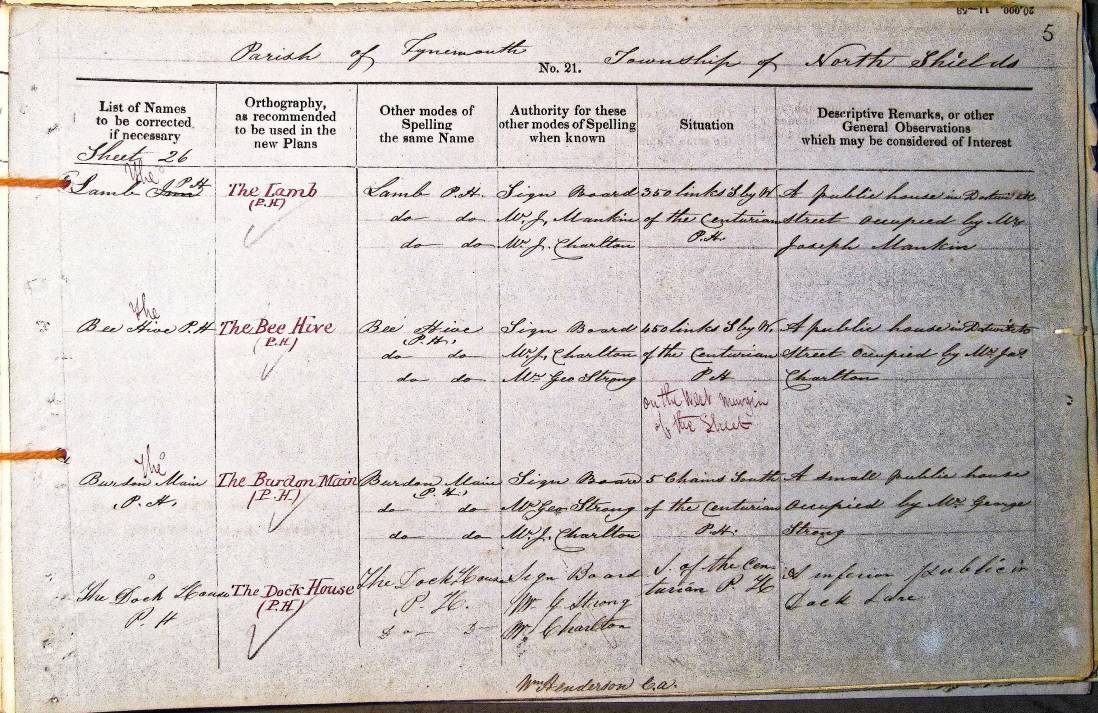 5
Parish of Tynemouth No. 21. Township of North Shields
List of Names to be corrected if necessary
Orthography, as recommended to be used in the new Plans
Other modes of Spelling the same Name
Authority for these other modes of Spelling when known
Situation
Descriptive Remarks, or other General Observations which may be considered of Interest
Sheet 26
The
Lamb Inn P.H.
The Lamb
(P.H)
Lamb P.H.
do do
do do
Sign Board
Mr. J. Mankin
Mr. J. Charlton
350 links S by W.
of the Centurian
P.H.
A public house in
street occupied by Mr
Joseph Mankin
The
Bee Hive P.H
The Bee Hive
(P.H)
Bee Hive
P.H.
do do
do do
Sign Board
Mr. J. Charlton
Mr. Geo Strong
450 links S by W.
of the Centurian
P.H
on the West Margin
of the Sheet
A public house in
Street occupied by Mr Jos
Charlton
The
Burdon Main
P.H.
The Burdon Main
(P.H)
Burdon Main
P.H.
do do
do do
Sign Board
Mr Geo Strong
Mr. J. Charlton
5 Chains South
of the Centurian
P.H.
A small public house
occupied by Mr. George
Strong
The Dock House
P.H
The Dock House
(P.H)
The Dock House
P.H.
Do D
Sign Board
Mr G Strong
Mr Charlton
S. of the Cen
turian P. H
A inferior public in
Dock Lane
Wm Henderson C.a.